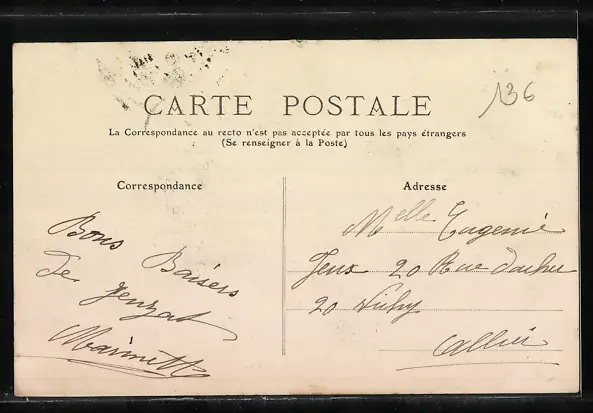 136
CARTE POSTALE
La Correspondance au recto n'est pas acceptée par tous les pays étrangers
(Se renseigner à la Poste)
Correspondance
Adresse
Bons Baisers
De Jenzat
Marinette
Melle Eugenie
Jeux 20 Rue
20 Vichy
Allier